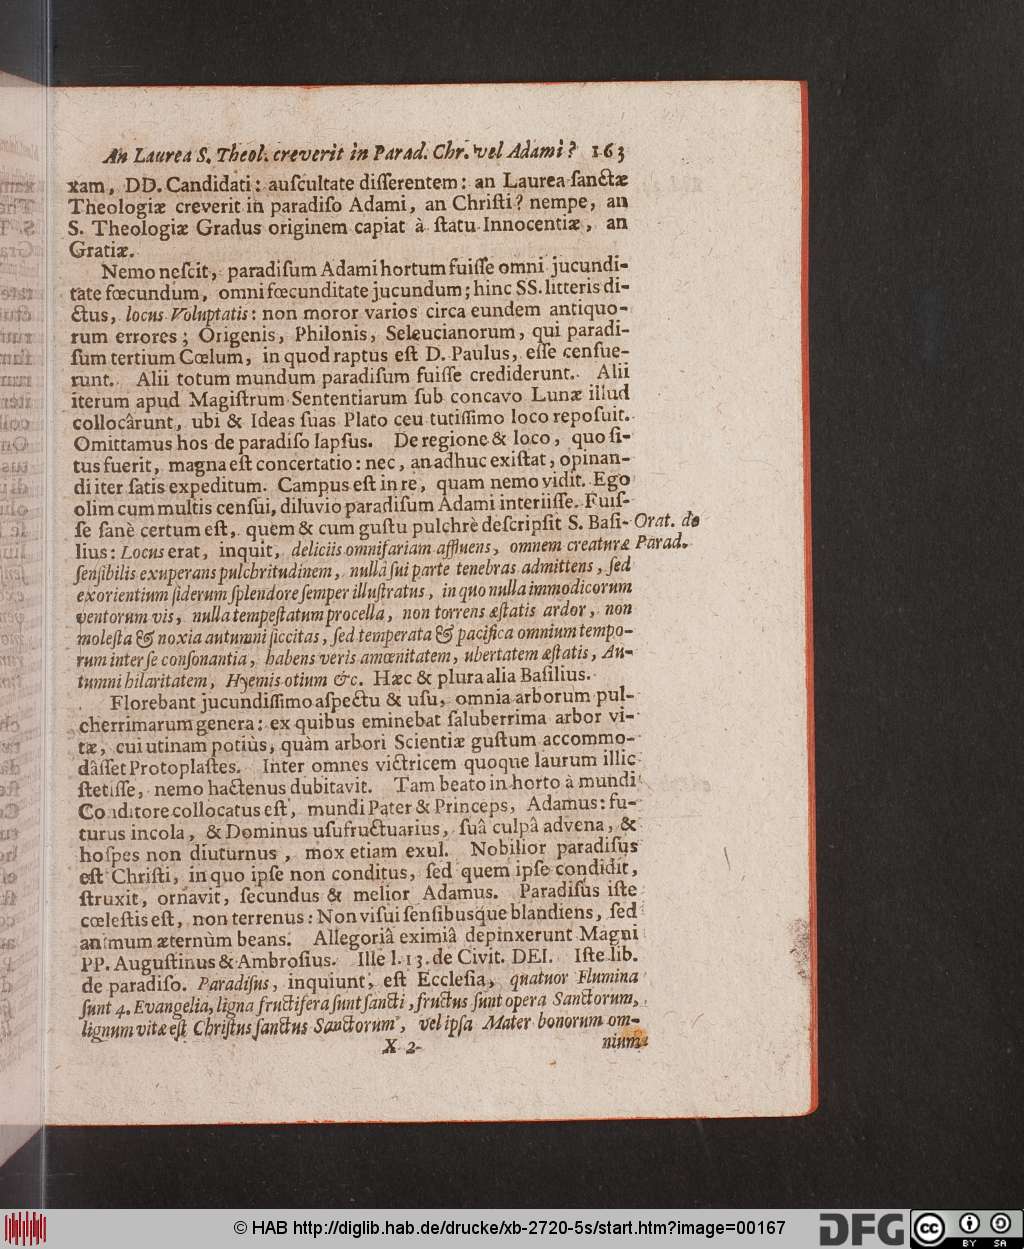 An Laurea S. Theol. creverit in Parad. Chr. vel Adami? 163
xam, DD. Candidati: auſcultate diſſerentem: an Laurea ſanctæ
Theologiæ creverit in paradiſo Adami, an Chriſti? nempe, an
S. Theologiæ Gradus originem capiat à ſtatu Innocentiæ, an
Gratiæ.
Nemo neſcit, paradiſum Adami hortum fuiſſe omni jucundi-
tate fœcundum, omni fœcunditate jucundum; hinc SS. litteris di-
ctus, locus Voluptatis: non moror varios circa eundem antiquo-
rum errores; Origenis, Philonis, Seleucianorum, qui paradi-
ſum tertium Cœlum, in quod raptus eſt D. Paulus, eſſe cenſue-
runt. Alii totum mundum paradiſum fuiſſe crediderunt. Alii
iterum apud Magiſtrum Sententiarum ſub concavo Lunæ illud
collocârunt, ubi & Ideas ſuas Plato ceu tutiſſimo loco repoſuit.
Omittamus hos de paradiſo lapſus. De regione & loco, quo ſi-
tus fuerit, magna eſt concertatio: nec, an adhuc exiſtat, opinan-
di iter ſatis expeditum. Campus eſt in re, quam nemo vidit. Ego
olim cum multis cenſui, diluvio paradiſum Adami interiiſſe. Fuiſ-
ſe ſanè certum eſt, quem & cum guſtu pulchrè deſcripſit S. Baſi- Orat. de
lius: Locus erat, inquit, deliciis omnifariam affluens, omnem creaturæ Parad.
ſenſibilis exuperans pulchritudinem, nullâ ſui parte tenebras admittens, ſed
exorientium ſiderum ſplendore ſemper illuſtratus, in quo nulla immodicorum
ventorum vis, nulla tempeſtatum procella, non torrens æſtatis ardor, non
moleſta & noxia autumni ſiccitas, ſed temperata & pacifica omnium tempo-
rum inter ſe conſonantia, habens veris amœnitatem, ubertatem æſtatis, Au-
tumni hilaritatem, Hyemis otium &c. Hæc & plura alia Baſilius.
Florebant jucundiſſimo aſpectu & uſu, omnia arborum pul-
cherrimarum genera: ex quibus eminebat ſaluberrima arbor vi-
tæ, cui utinam potiùs, quàm arbori Scientiæ guſtum accommo-
dâſſet Protoplaſtes. Inter omnes victricem quoque laurum illic
ſtetiſſe, nemo hactenus dubitavit. Tam beato in horto à mundi
Conditore collocatus eſt, mundi Pater & Princeps, Adamus: fu-
turus incola, & Dominus uſufructuarius, ſuâ culpâ advena, &
hoſpes non diuturnus, mox etiam exul. Nobilior paradiſus
eſt Chriſti, in quo ipſe non conditus, ſed quem ipſe condidit,
ſtruxit, ornavit, ſecundus & melior Adamus. Paradiſus iſte
cœleſtis eſt, non terrenus: Non viſui ſenſibusque blandiens, ſed
animum æternùm beans. Allegoriâ eximiâ depinxerunt Magni
PP. Auguſtinus & Ambroſius. Ille l. 13. de Civit. DEI. Iſte lib.
de paradiſo. Paradiſus, inquiunt, eſt Eccleſia, quatuor Flumina
ſunt 4. Evangelia, ligna fructifera ſunt ſancti, fructus ſunt opera Sanctorum,
lignum vitæ eſt Chriſtus ſanctus Sanctorum, vel ipſa Mater bonorum om-
X 2 nium
© HAB http://diglib.hab.de/drucke/xb-2720-5s/start.htm?image=00167
DFG
cc BY SA